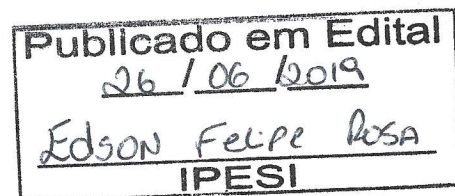 Publicado em Edital
26 / 06 / 2019
Edson Felipe Rosa
IPESI